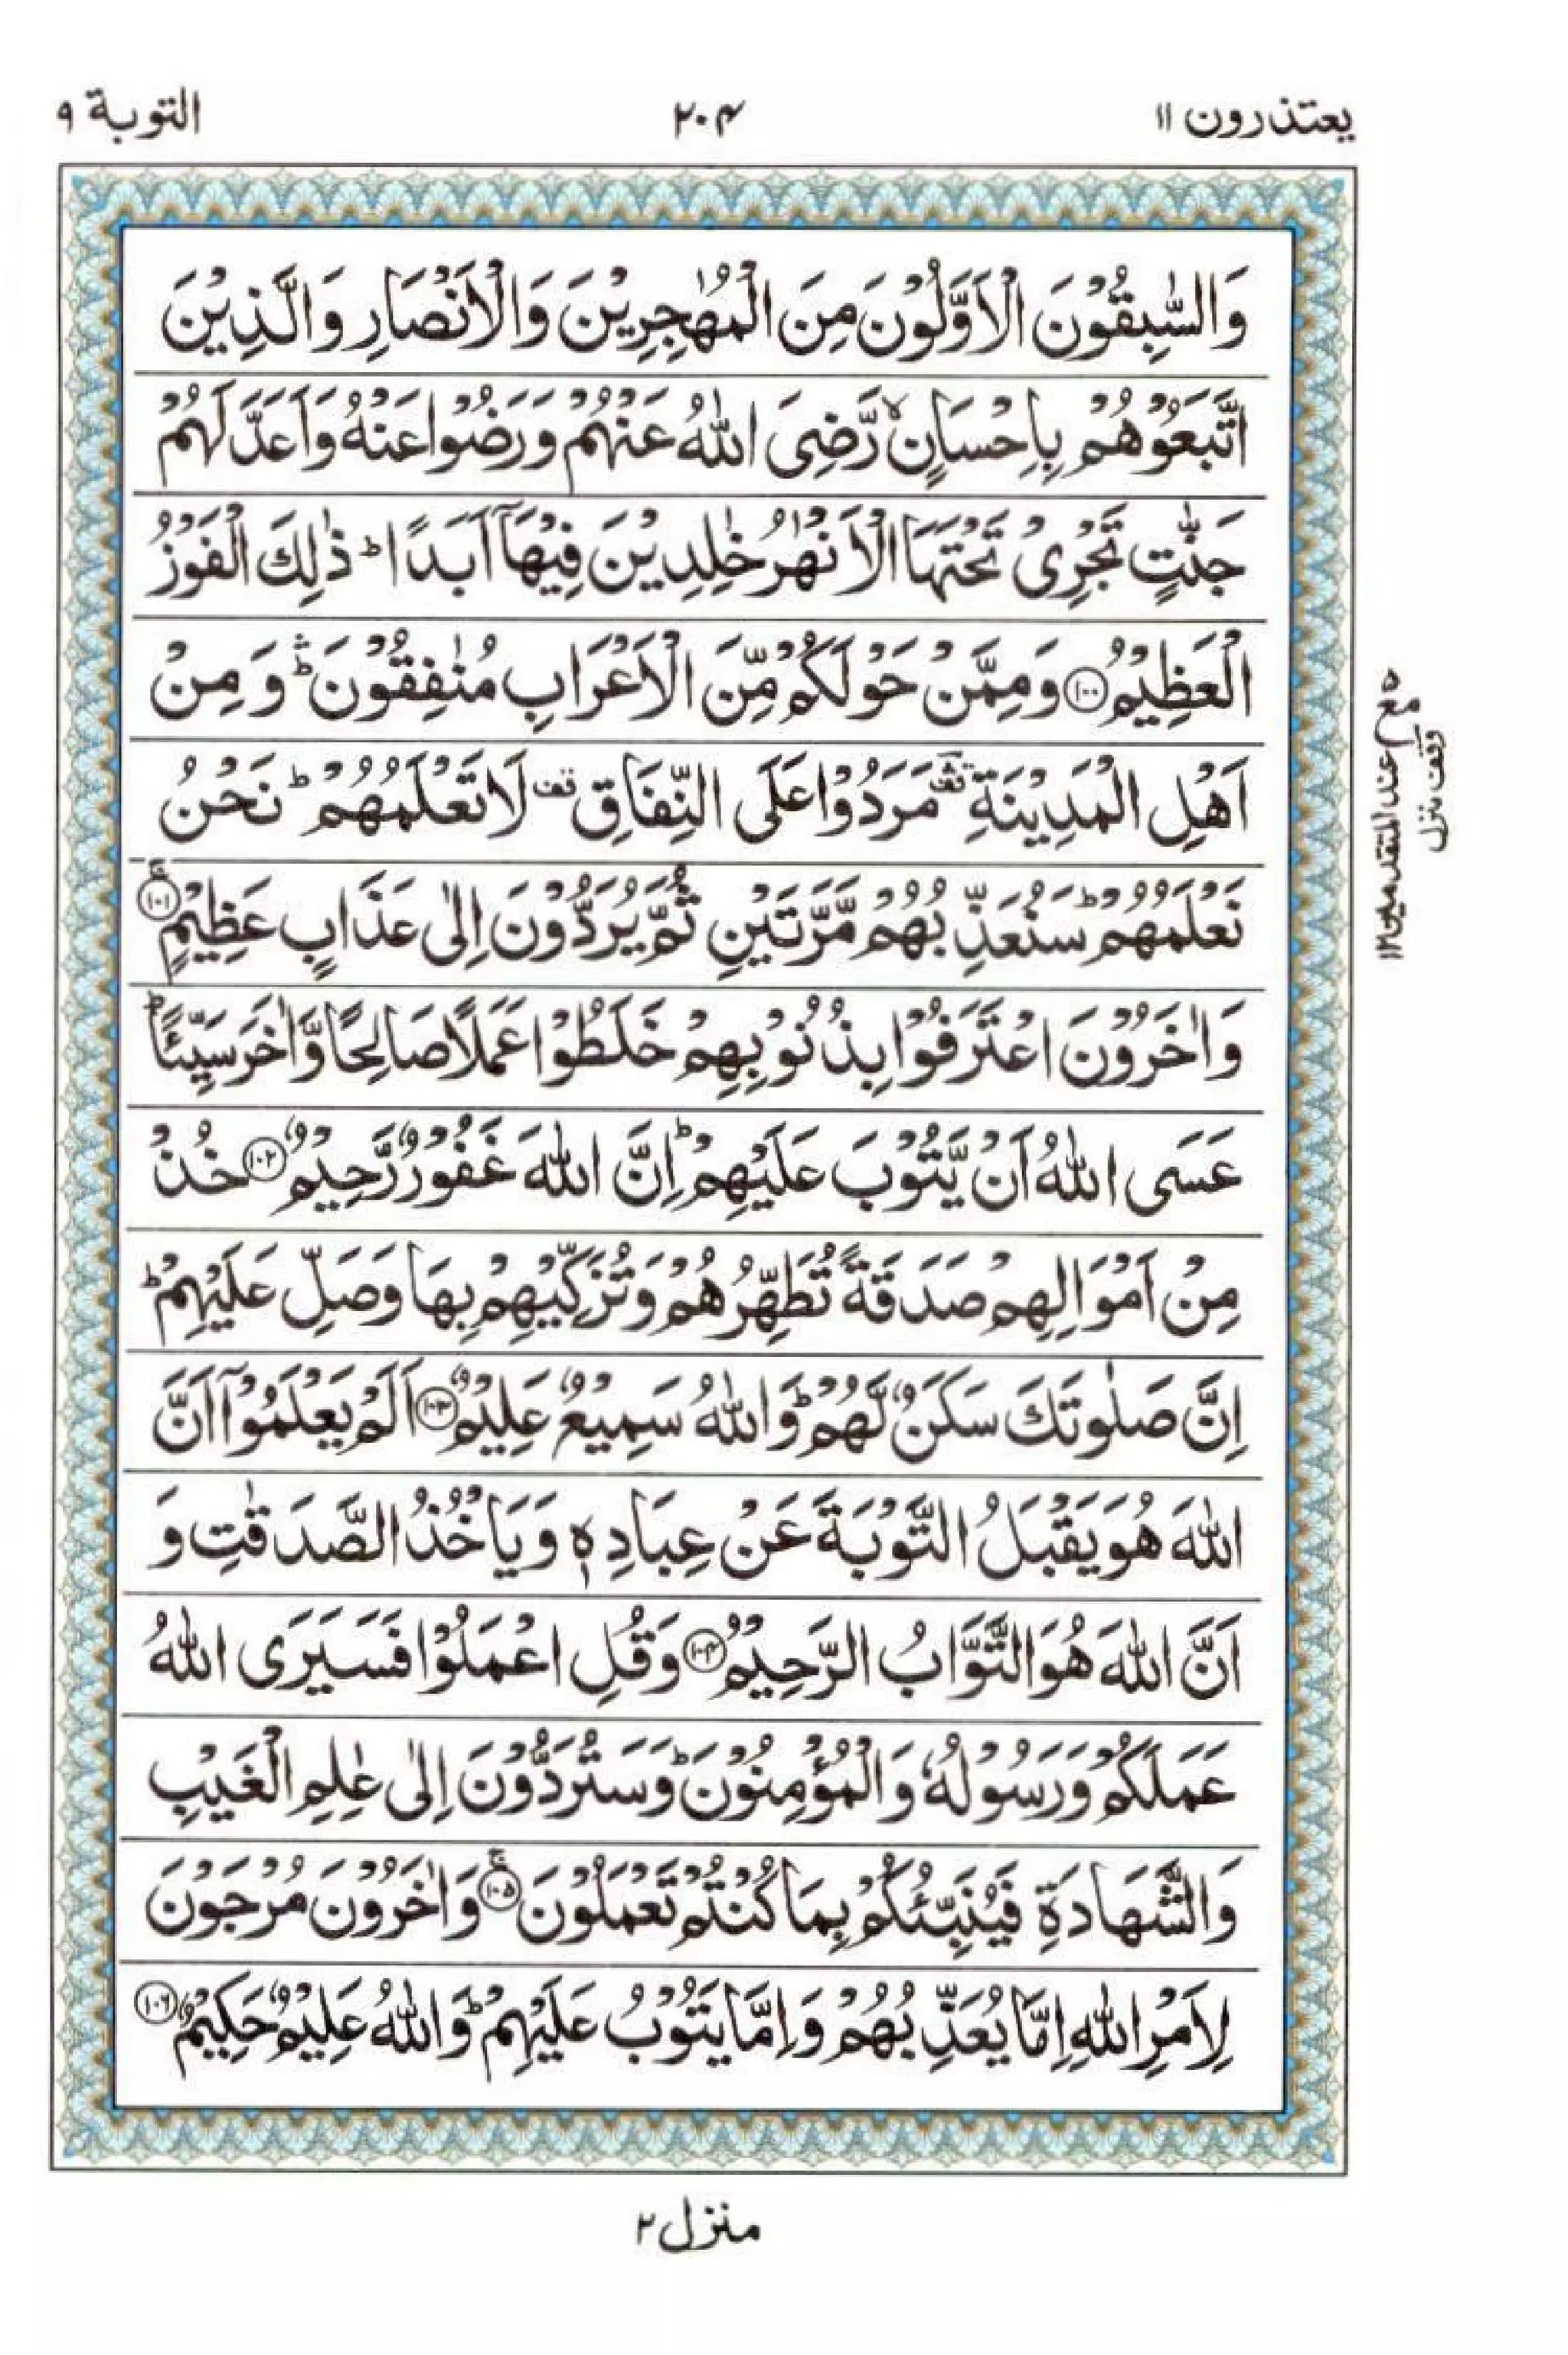 يعتذرون ۱۱
۲۰۴
التوبة ۹
وَالسّٰبِقُوْنَ الْاَوَّلُوْنَ مِنَ الْمُهٰجِرِيْنَ وَالْاَنْصَارِ وَالَّذِيْنَ
اتَّبَعُوْهُمْ بِاِحْسَانٍ ۙ رَّضِىَ اللّٰهُ عَنْهُمْ وَرَضُوْا عَنْهُ وَاَعَدَّ لَهُمْ
جَنّٰتٍ تَجْرِىْ تَحْتَهَا الْاَنْهٰرُ خٰلِدِيْنَ فِيْهَآ اَبَدًا ؕ ذٰلِكَ الْفَوْزُ
الْعَظِيْمُ ۝۱۰۰ وَمِمَّنْ حَوْلَكُمْ مِّنَ الْاَعْرَابِ مُنٰفِقُوْنَ ۛؕ وَمِنْ
اَهْلِ الْمَدِيْنَةِ ۛ قف مَرَدُوْا عَلَى النِّفَاقِ قف لَا تَعْلَمُهُمْ ؕ نَحْنُ
نَعْلَمُهُمْ ؕ سَنُعَذِّبُهُمْ مَّرَّتَيْنِ ثُمَّ يُرَدُّوْنَ اِلٰى عَذَابٍ عَظِيْمٍ ۝۱۰۱ۚ
وَاٰخَرُوْنَ اعْتَرَفُوْا بِذُنُوْبِهِمْ خَلَطُوْا عَمَلًا صَالِحًا وَّاٰخَرَ سَيِّئًا ؕ
عَسَى اللّٰهُ اَنْ يَّتُوْبَ عَلَيْهِمْ ؕ اِنَّ اللّٰهَ غَفُوْرٌ رَّحِيْمٌ ۝۱۰۲ خُذْ
مِنْ اَمْوَالِهِمْ صَدَقَةً تُطَهِّرُهُمْ وَتُزَكِّيْهِمْ بِهَا وَصَلِّ عَلَيْهِمْ ؕ
اِنَّ صَلٰوتَكَ سَكَنٌ لَّهُمْ ؕ وَاللّٰهُ سَمِيْعٌ عَلِيْمٌ ۝۱۰۳ اَلَمْ يَعْلَمُوْٓا اَنَّ
اللّٰهَ هُوَ يَقْبَلُ التَّوْبَةَ عَنْ عِبَادِهٖ وَيَاْخُذُ الصَّدَقٰتِ وَ
اَنَّ اللّٰهَ هُوَ التَّوَّابُ الرَّحِيْمُ ۝۱۰۴ وَقُلِ اعْمَلُوْا فَسَيَرَى اللّٰهُ
عَمَلَكُمْ وَرَسُوْلُهٗ وَالْمُؤْمِنُوْنَ ؕ وَسَتُرَدُّوْنَ اِلٰى عٰلِمِ الْغَيْبِ
وَالشَّهَادَةِ فَيُنَبِّئُكُمْ بِمَا كُنْتُمْ تَعْمَلُوْنَ ۝۱۰۵ۚ وَاٰخَرُوْنَ مُرْجَوْنَ
لِاَمْرِ اللّٰهِ اِمَّا يُعَذِّبُهُمْ وَاِمَّا يَتُوْبُ عَلَيْهِمْ ؕ وَاللّٰهُ عَلِيْمٌ حَكِيْمٌ ۝۱۰۶
مع ۵ عند المتقدمين ۱۲
وقف منزل
منزل ۲